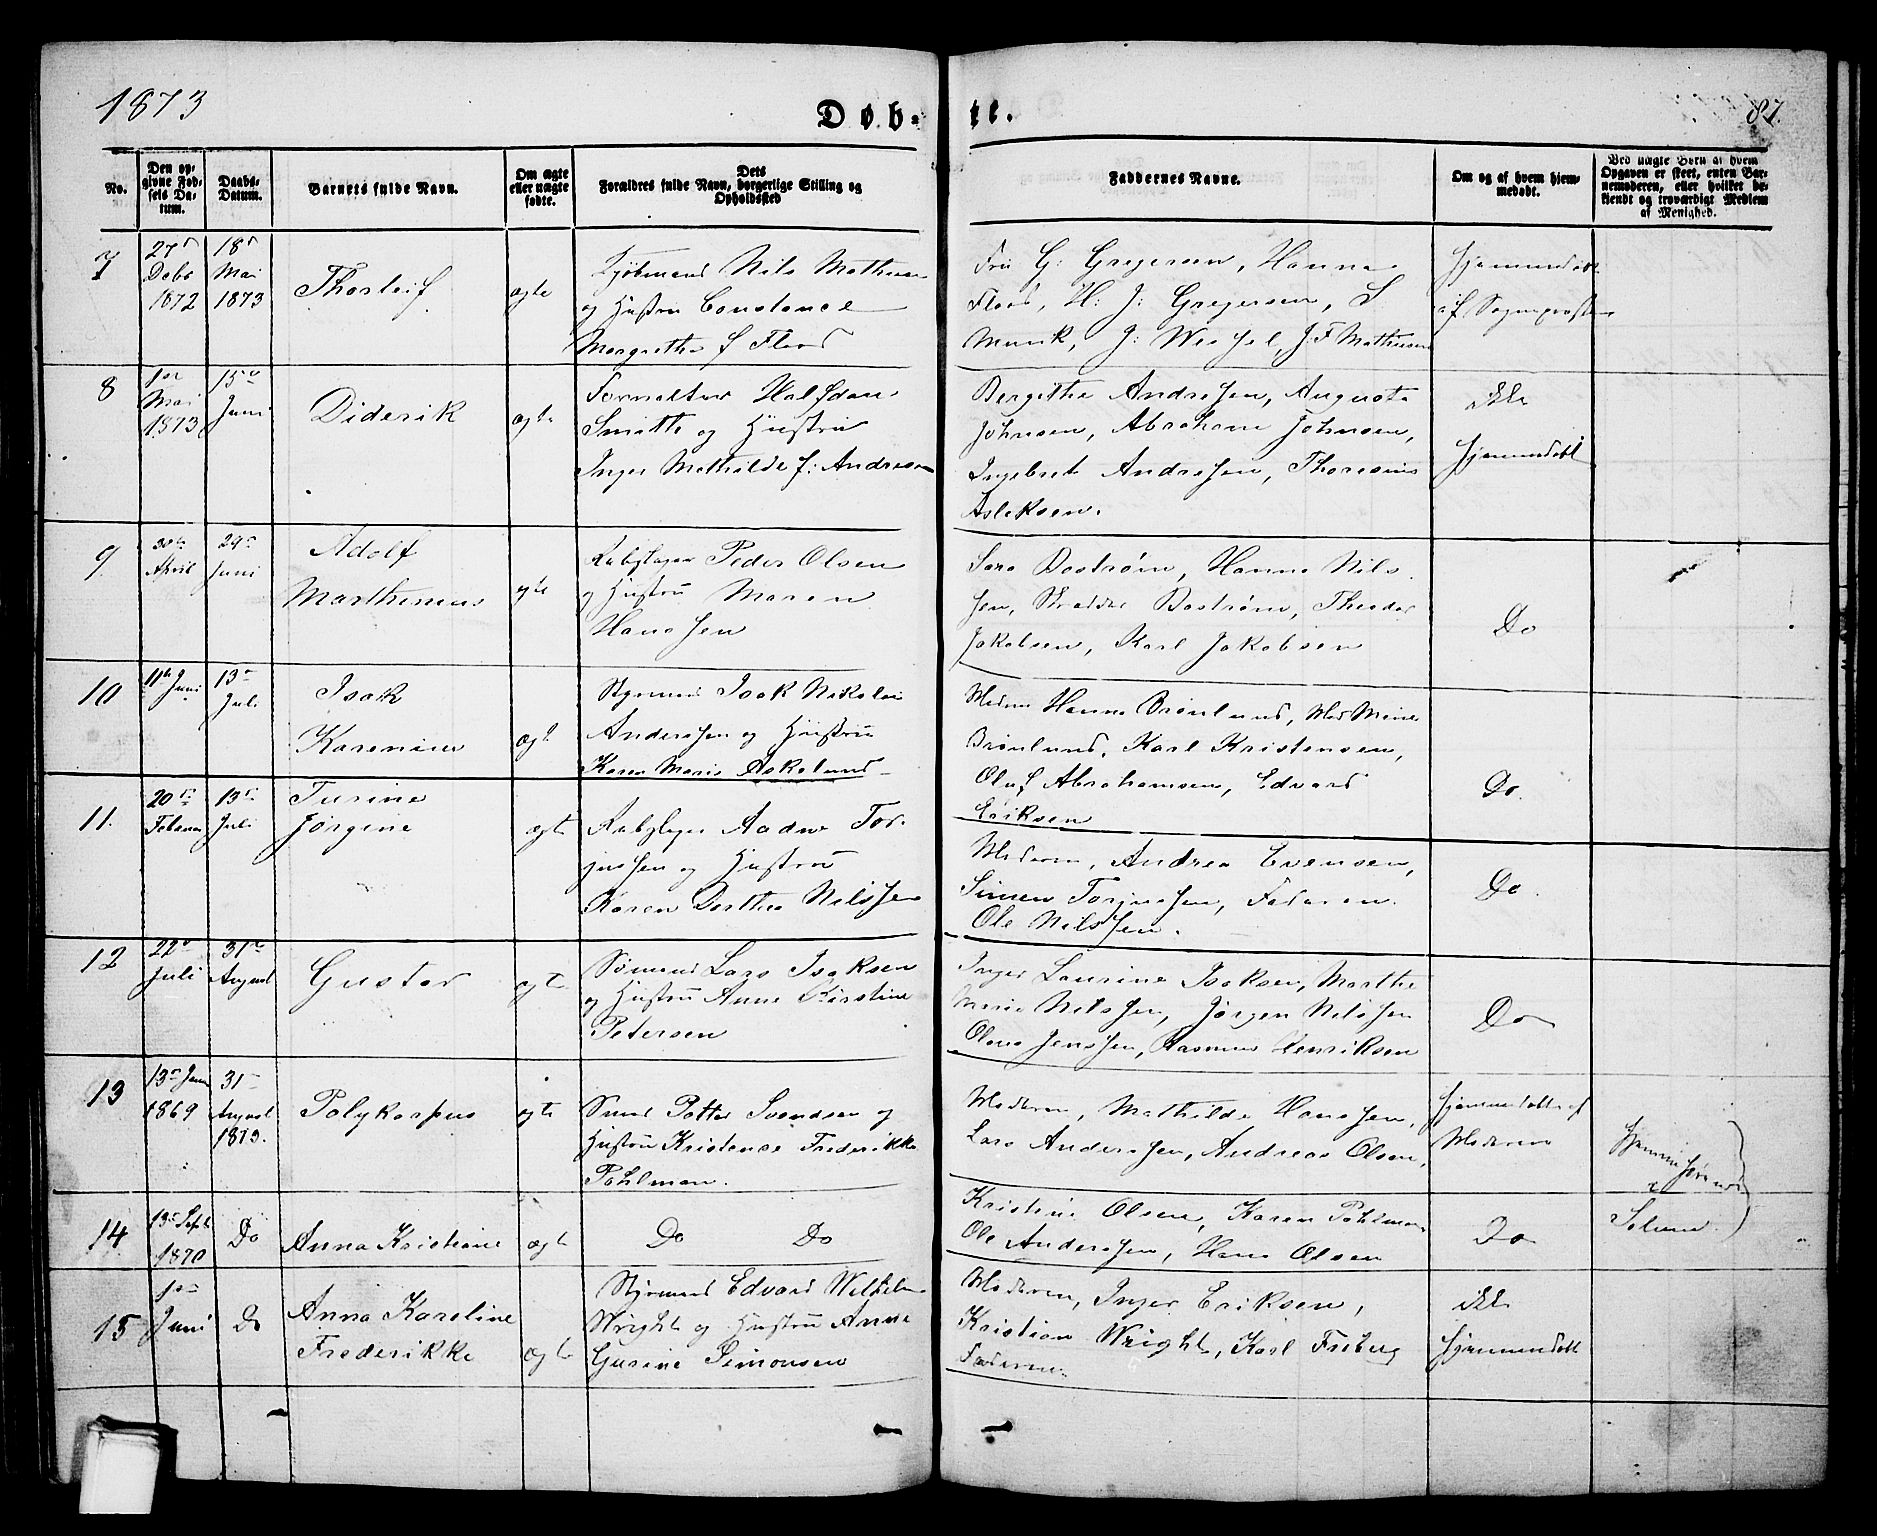 1873
Døb-
te.
87.
No.
Den op-
givne Fød-
sels Da-
tum.
Daabs-
Datum.
Barnets fulde Navn.
Om ægte
eller uægte
fødte.
Dets
Forældres fulde Navn, borgerlige Stilling og
Opholdssted
Faddernes Navne.
Om og af hvem hjem-
medøbt.
Ved uægte Børn af hvem
Opgaven er skeet, enten Bar-
nemoderen, eller hvilket be-
kjendt og troværdigt Medlem
af Menighed.
7
27
Debr
1872
18
Mai
1873
Thorleif
ægte
Kjøbmand Nils Mathiesen
og Hustru Constance
Margrethe f Flood
Fru G: Gregersen, Hanna
Flood, H: J: Gregersen, S
Munk, J: Weisel, J. F Mathiesen
hjemmedøbt
af Sognepræsten
8
1ste
Mai
1873
15
Juni
Diderik
ægte
Forvalter Halfdan
Smitth og Hustru
Inger Mathilde f: Andresen
Bergithe Andresen, Auguste
Johnsen, Abraham Johnsen,
Ingebret Andresen, Thoresius
Aslaksen.
ikke
hjemmedøbt
9
30te
April
29
Juni
Adolf
Marthinius
ægte
Rebslager Peder Olsen
og Hustru Maren
Hanssen
Sara Bostrøm, Hanna Nils
sen, Bostrøm, Theodor
Jakobsen, Karl Jakobsen
Do
10
11te Juni
13
Juli
Isak
Karenius
ægte
Styrmand Isak Nikolai
Anderssen og Hustru
Karen Marie Askelund
Madam Hanna Brønlund, Mad Mine
Brønlund, Karl Kristensen,
Oluf Abrahamsen, Edvard
Eriksen
Do.
11.
20
Februar
13
Juli
Turine
Jørgine
ægte
Rebslager Aadne Tor-
jussen og Hustru
Karen Dorthea Nilssen
Moderen, Andrea Evensen,
Simen Torjussen, Faderen
Ole Nilssen.
Do.
12
22
Juli
31te
August
Gustav
ægte
Sømand Lars Isaksen
og Hustru Anne Kirstine
Petersen
Inger Laurine Isaksen, Marthe
Marie Nilssen, Jørgen Nilssen
Olaus Jenssen, Rasmus Henriksen
Do
13
13 Janr
1869
31
August
1873.
Polykarpus
ægte
Smed Petter Svendsen og
Hustru Kristence Frederikke
Pohlman.
Moderen, Mathilde Hanssen,
Lars Anderssen, Andreas Olsen,
hjemmedøbt af
Moderen
hjemmehørende
i
14
13 Sept
1870
Do
Anna Kristiane
ægte
Do Do
Kristine Olsen, Karen Pohlman
Ole Anderssen, Hans Olsen
Do
15
1ste
Juni
Do
Anna Karoline
Frederikke
ægte
Styrmand Edvard Wilhelm
Wright og Hustru Anne
Gurine Simonsen
Moderen, Inger Eriksen,
Kristian Wright, Karl Friberg
Faderen.
ikke
hjemmedøbt